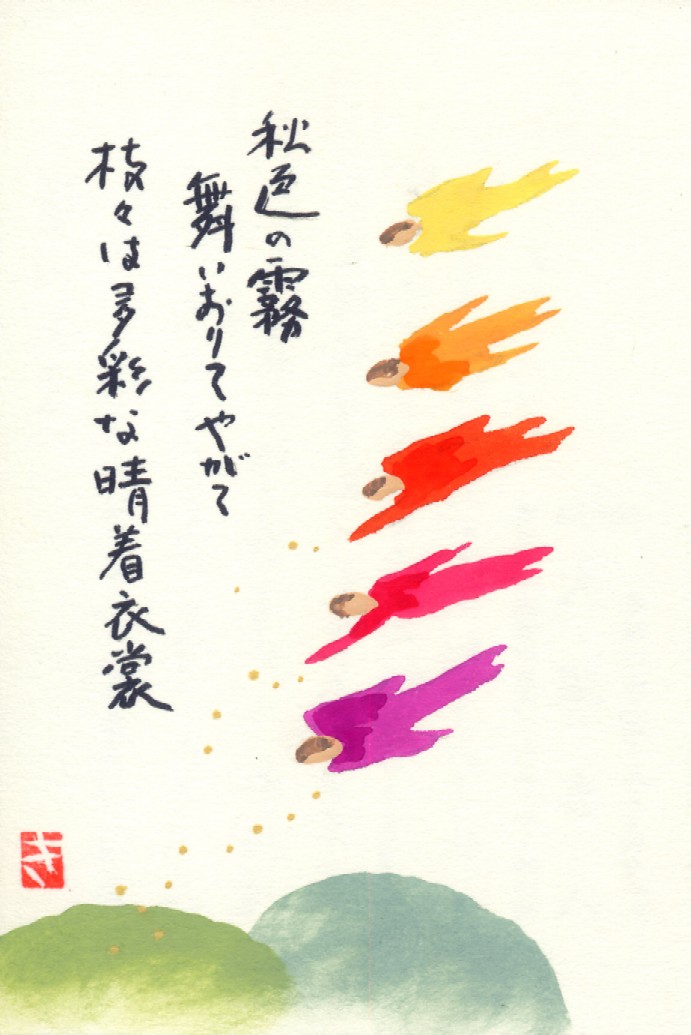 秋色の霧
舞いおりてやがて
枝々は多彩な晴着衣裳